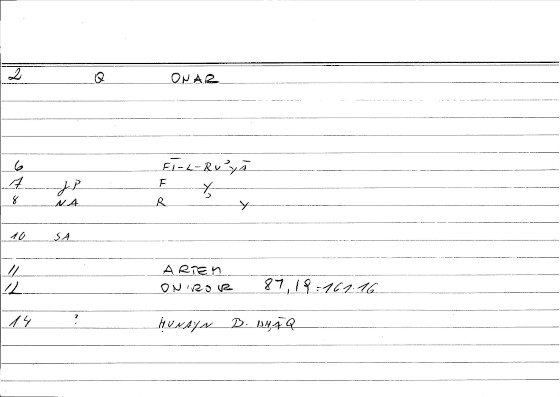 2 Q ONAR
6 FĪ-L-RUʾYĀ
7 JP F Y
8 NA R ʾ Y
10 SA
11 ARTEM
12 ONIROKR 87,19 = 161.16
14 ? ḤUNAYN B. ISḤĀQ